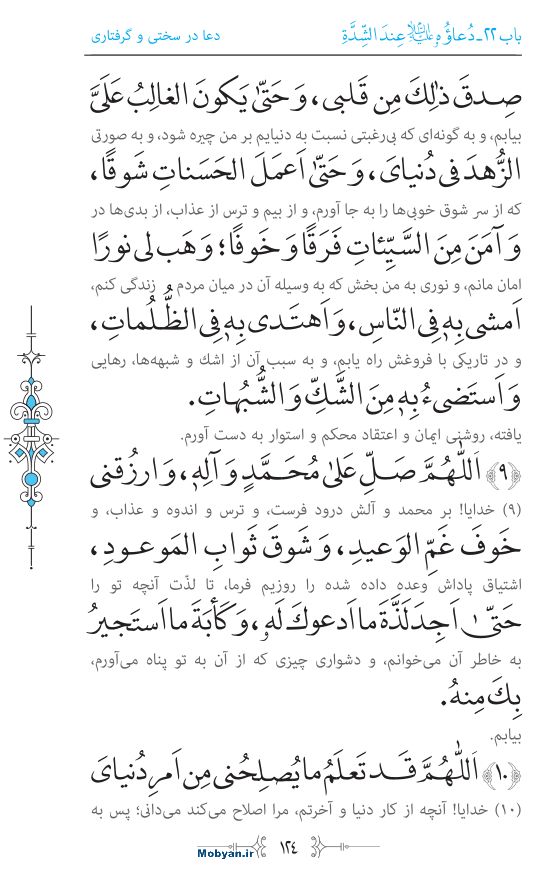 باب ۲۲ـ دُعاؤُهُ عليه‌السلام عِندَ الشِّدَّةِ
دعا در سختی و گرفتاری
صِدقَ ذٰلِكَ مِن قَلبی، وَ حَتّیٰ یَكونَ الغالِبُ عَلَیَّ
بیابم، و به گونه‌ای که بی‌رغبتی نسبت به دنیایم بر من چیره شود، و به صورتی
الزُّهدَ فی دُنیایَ، وَ حَتّیٰ اَعمَلَ الحَسَناتِ شَوقًا،
که از سر شوق خوبی‌ها را به جا آورم، و از بیم و ترس از عذاب، از بدی‌ها در
وَ آمَنَ مِنَ السَّیِّئاتِ فَرَقًا وَ خَوفًا؛ وَ هَب لی نورًا
امان مانم، و نوری به من بخش که به وسیله آن در میان مردم زندگی کنم،
اَمشی بِهٖ فِی النّاسِ، وَ اَهتَدی بِهٖ فِی الظُّلُماتِ،
و در تاریکی با فروغش راه یابم، و به سبب آن از اشك و شبهه‌ها، رهایی
وَ اَستَضیءُ بِهٖ مِنَ الشَّكِّ وَ الشُّبُهاتِ.
یافته، روشنی ایمان و اعتقاد محکم و استوار به دست آورم.
﴿۹﴾ اَللّٰهُمَّ صَلِّ عَلیٰ مُحَمَّدٍ وَ آلِهٖ، وَ ارزُقنی
(۹) خدایا! بر محمد و آلش درود فرست، و ترس و اندوه و عذاب، و
خَوفَ غَمِّ الوَعیدِ، وَ شَوقَ ثَوابِ المَوعودِ،
اشتیاق پاداش وعده داده شده را روزیم فرما، تا لذّت آنچه تو را
حَتّیٰ اَجِدَ لَذَّةَ ما اَدعوكَ لَهٗ، وَ كَأبَةَ ما اَستَجیرُ
به خاطر آن می‌خوانم، و دشواری چیزی که از آن به تو پناه می‌آورم،
بِكَ مِنهُ.
بیابم.
﴿۱۰﴾ اَللّٰهُمَّ قَد تَعلَمُ ما یُصلِحُنی مِن اَمرِ دُنیایَ
(۱۰) خدایا! آنچه از کار دنیا و آخرتم، مرا اصلاح می‌کند می‌دانی؛ پس به
۱۲٤
Mobyan.ir